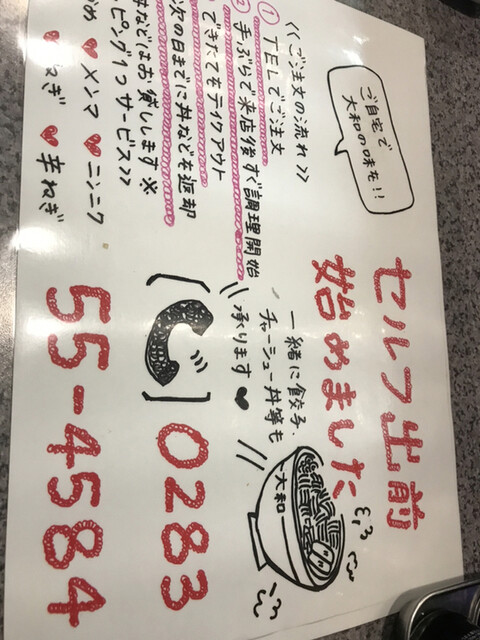 セルフ出前
始めました
ご自宅で
大和の味を!!
一緒に餃子、
チャーシュー丼等も
承ります♥
大和
0283
55-4584
<<ご注文の流れ>>
① TELでご注文
② 手ぶらで来店後すぐ調理開始
できたてをテイクアウト
次の日までに丼などを返却
丼などはお貸しします※
ピング1つサービス>>
メンマ ♥ ニンニク
ねぎ ♥ 辛ねぎ